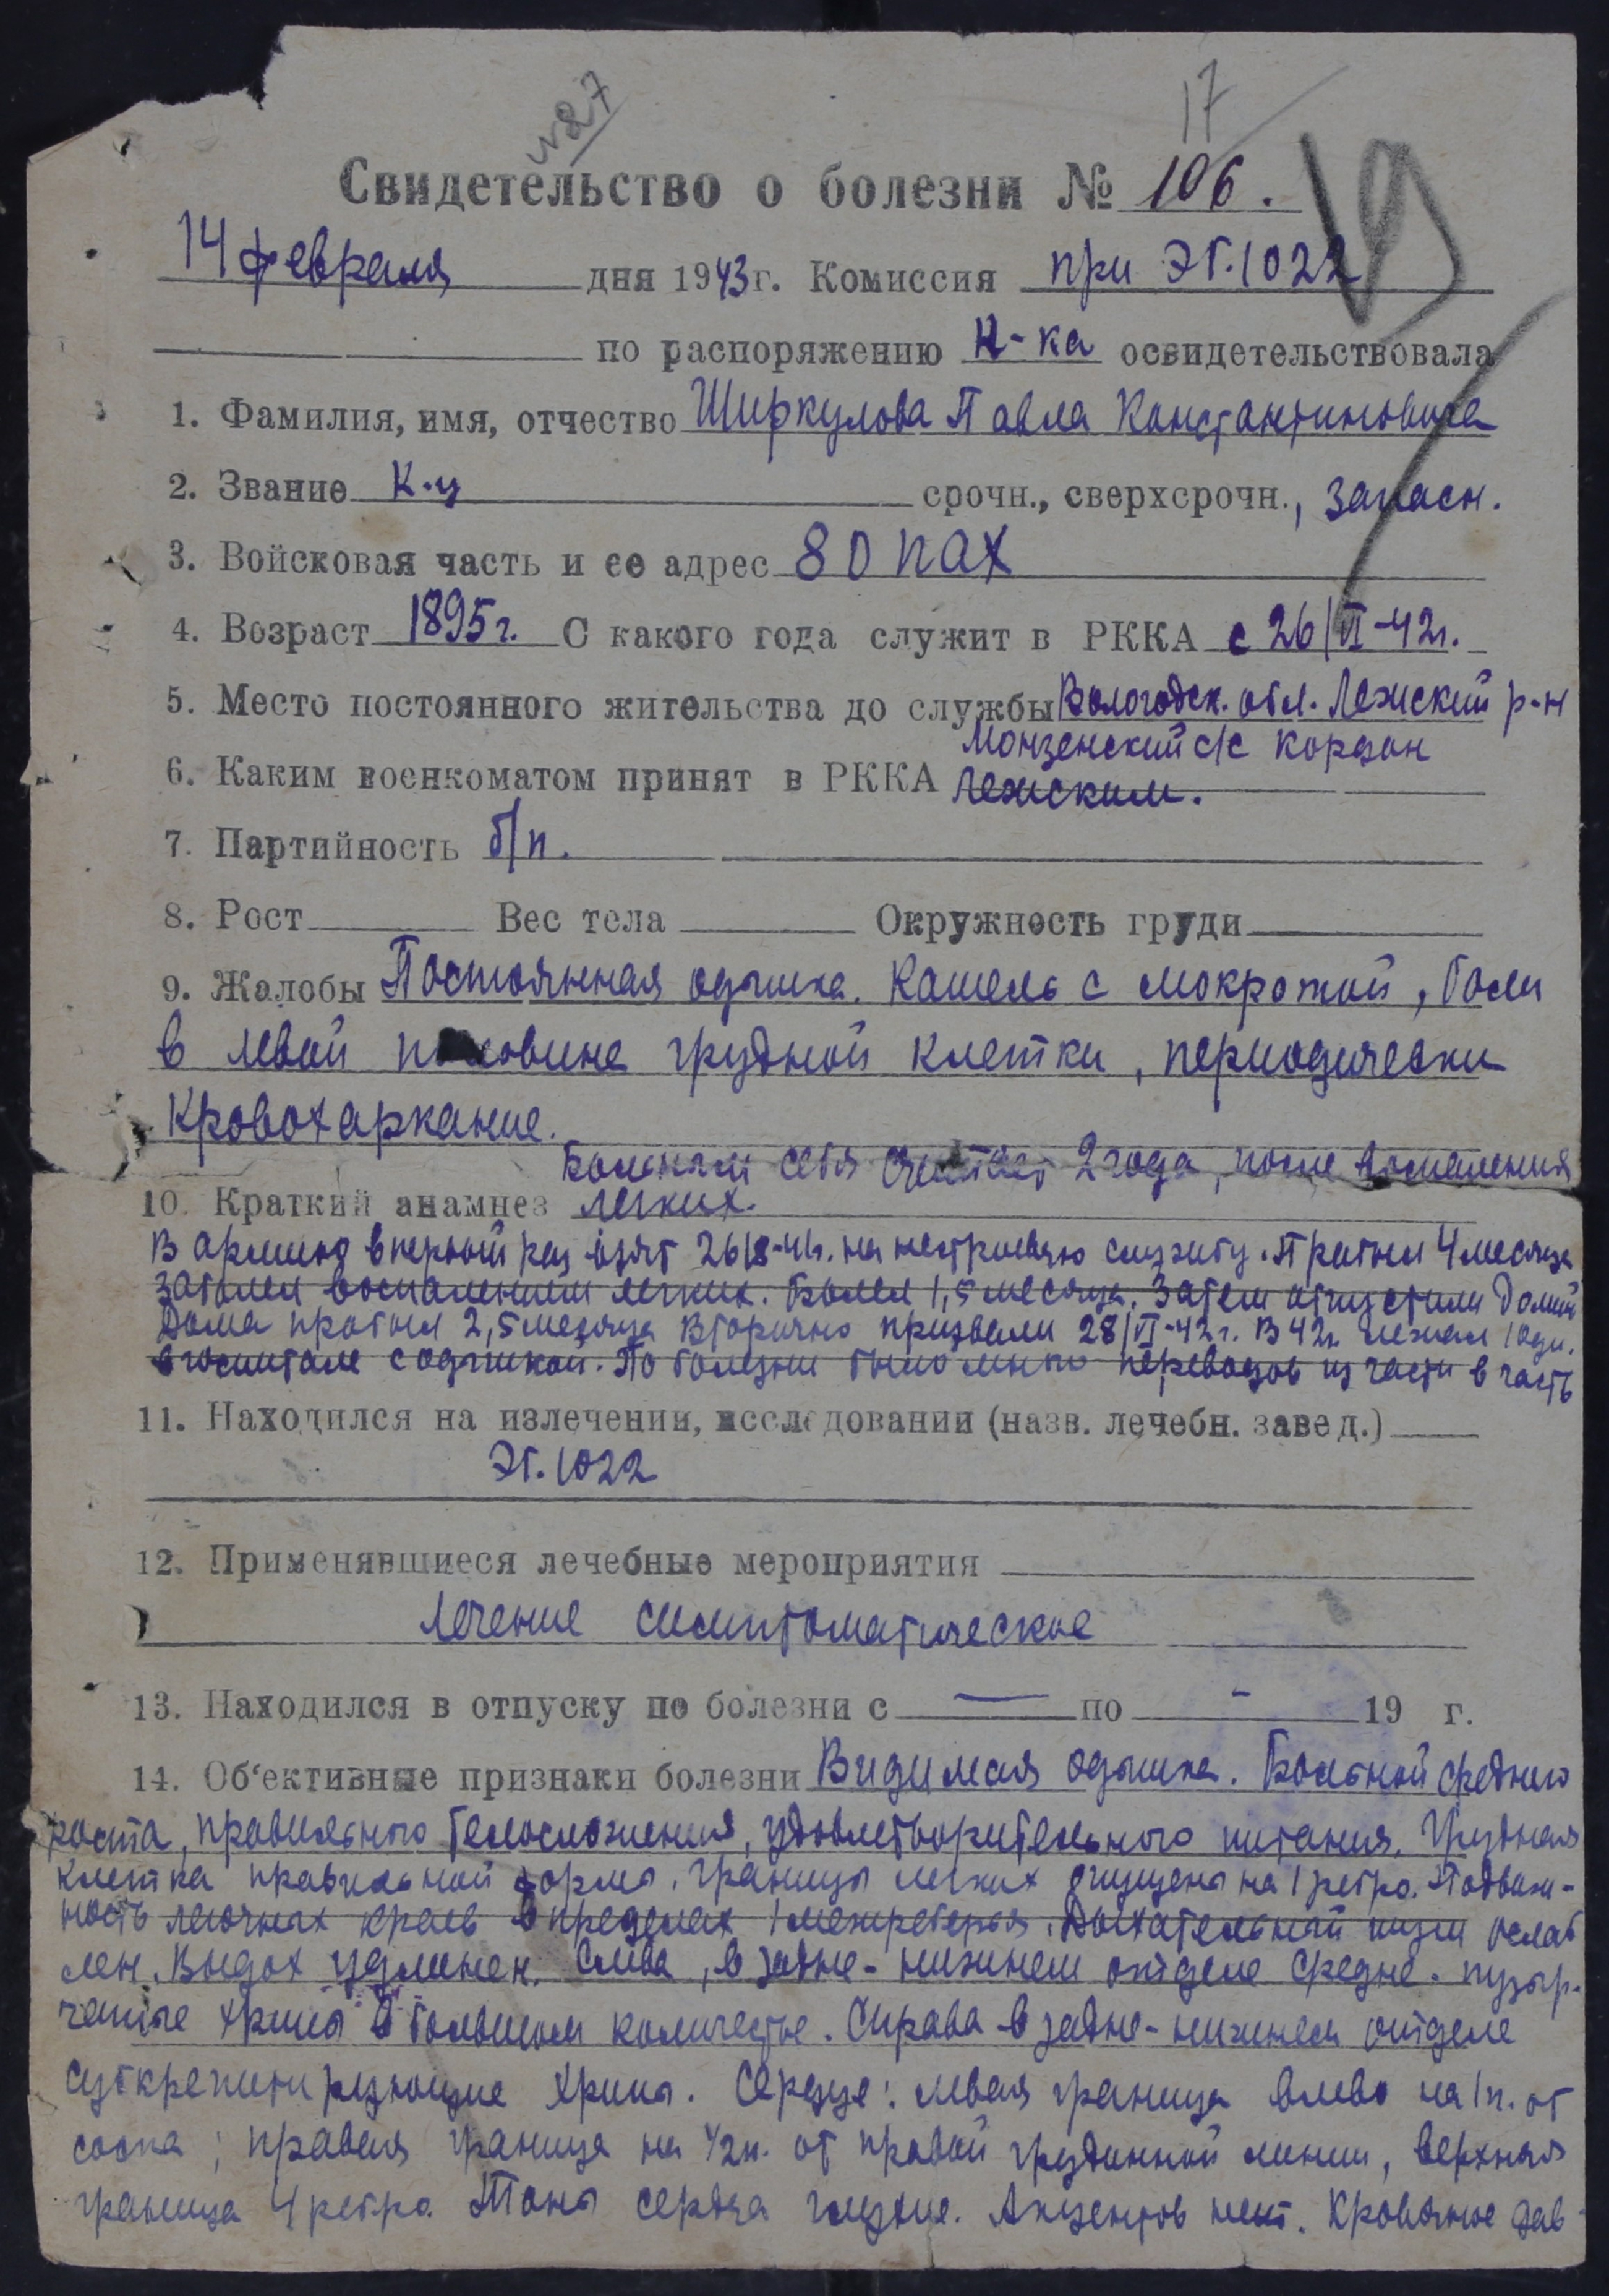 №27
17
Свидетельство о болезни № 106.
19
14 февраля дня 1943 г. Комиссия при ЭГ.1022
по распоряжению Н-ка освидетельствовала
1. Фамилия, имя, отчество Ширкулова Павла Константиновича
2. Звание К-ц срочн., сверхсрочн., запасн.
3. Войсковая часть и ее адрес 80 пах
4. Возраст 1895г. С какого года служит в РККА с 26/VI-42г.
5. Место постоянного жительства до службы Вологодск. обл. Лежский р-н
Монзенский с/с кордон
6. Каким военкоматом принят в РККА Лежским.
7. Партийность б/п.
8. Рост Вес тела Окружность груди
9. Жалобы Постоянная одышка. Кашель с мокротой, боли
в левой половине грудной клетки, периодически
кровохаркание.
Больным себя считает 2 года, после воспаления
10. Краткий анамнез легких.
В армию впервый раз взят 26/8-41г. на нестроевую службу. Пробыл 4 месяца
заболел воспалением легких. Болел 1,5 месяца. Затем отпустили домой
Дома пробыл 2,5 месяца Вторично призвали 28/VI-42г. В 42г. лежал
в госпитале с одышкой. По болезни было много переводов из части в часть
11. Находился на излечении, исследовании (назв. лечебн. завед.)
ЭГ.1022
12. Применявшиеся лечебные мероприятия
Лечение симптоматическое
13. Находился в отпуску по болезни с — по - 19 г.
14. Об'ективные признаки болезни Видимая одышка. Больной среднего
роста, правильного телосложения, удовлетворительного питания. Грудная
клетка правильной формы. Границы легких опущены на 1 ребро. Подвиж-
ность легочных краев в пределах 1 межреберья. Дыхательный шум ослаб
лен. Выдох удлинен. Слева, в задне-нижнем отделе средне-пузыр-
чатые хрипы в большом количестве. Справа в задне-нижнем отделе
субкрепитирующие хрипы. Сердце: левая граница влево на 1п. от
соска; правая граница на 1/2п. от правой грудинной линии, верхняя
граница 4 ребро. Тоны сердца глухие. Акцентов нет. Кровяное дав-